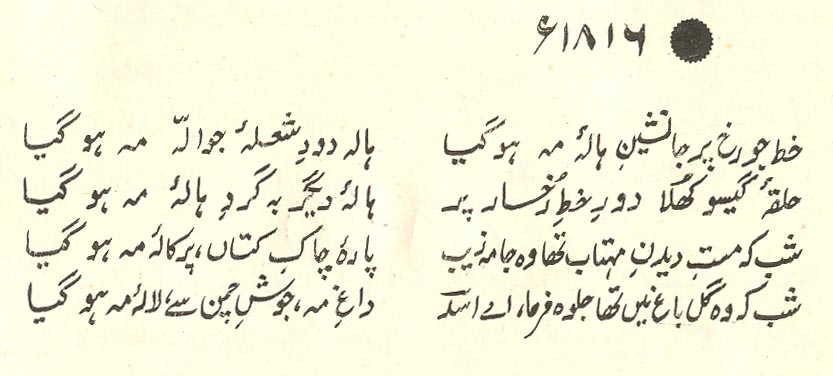 ۱۸۱۶ء
خط جو رخ پر جانشینِ ہالۂ مہ ہو گیا ہالہ دودِ شعلۂ جوالہّ مہ ہو گیا
حلقۂ گیسو کھُلا دورِ خطِ رُخسار پر ہالۂ دیگر بہ گردِ ہالۂ مہ ہو گیا
شب کہ مستِ دیدنِ مہتاب تھا وہ جامہ زیب پارۂ چاکِ کتاں، پرکالۂ مہ ہو گیا
شب کہ وہ گل باغ میں تھا جلوہ فرما، اے اسدؔ داغِ مہ، جوشِ چمن سے، لالۂ مہ ہو گیا